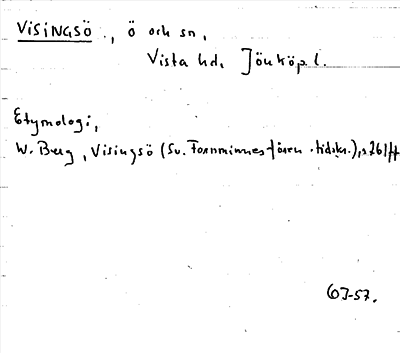 VISINGSÖ., ö och sn,
Vista hd. Jönköp. l.
Etymologi,
W. Berg, Visingsö (Sv. Fornminnesfören. tidskr.), s 261 ff
63-57.